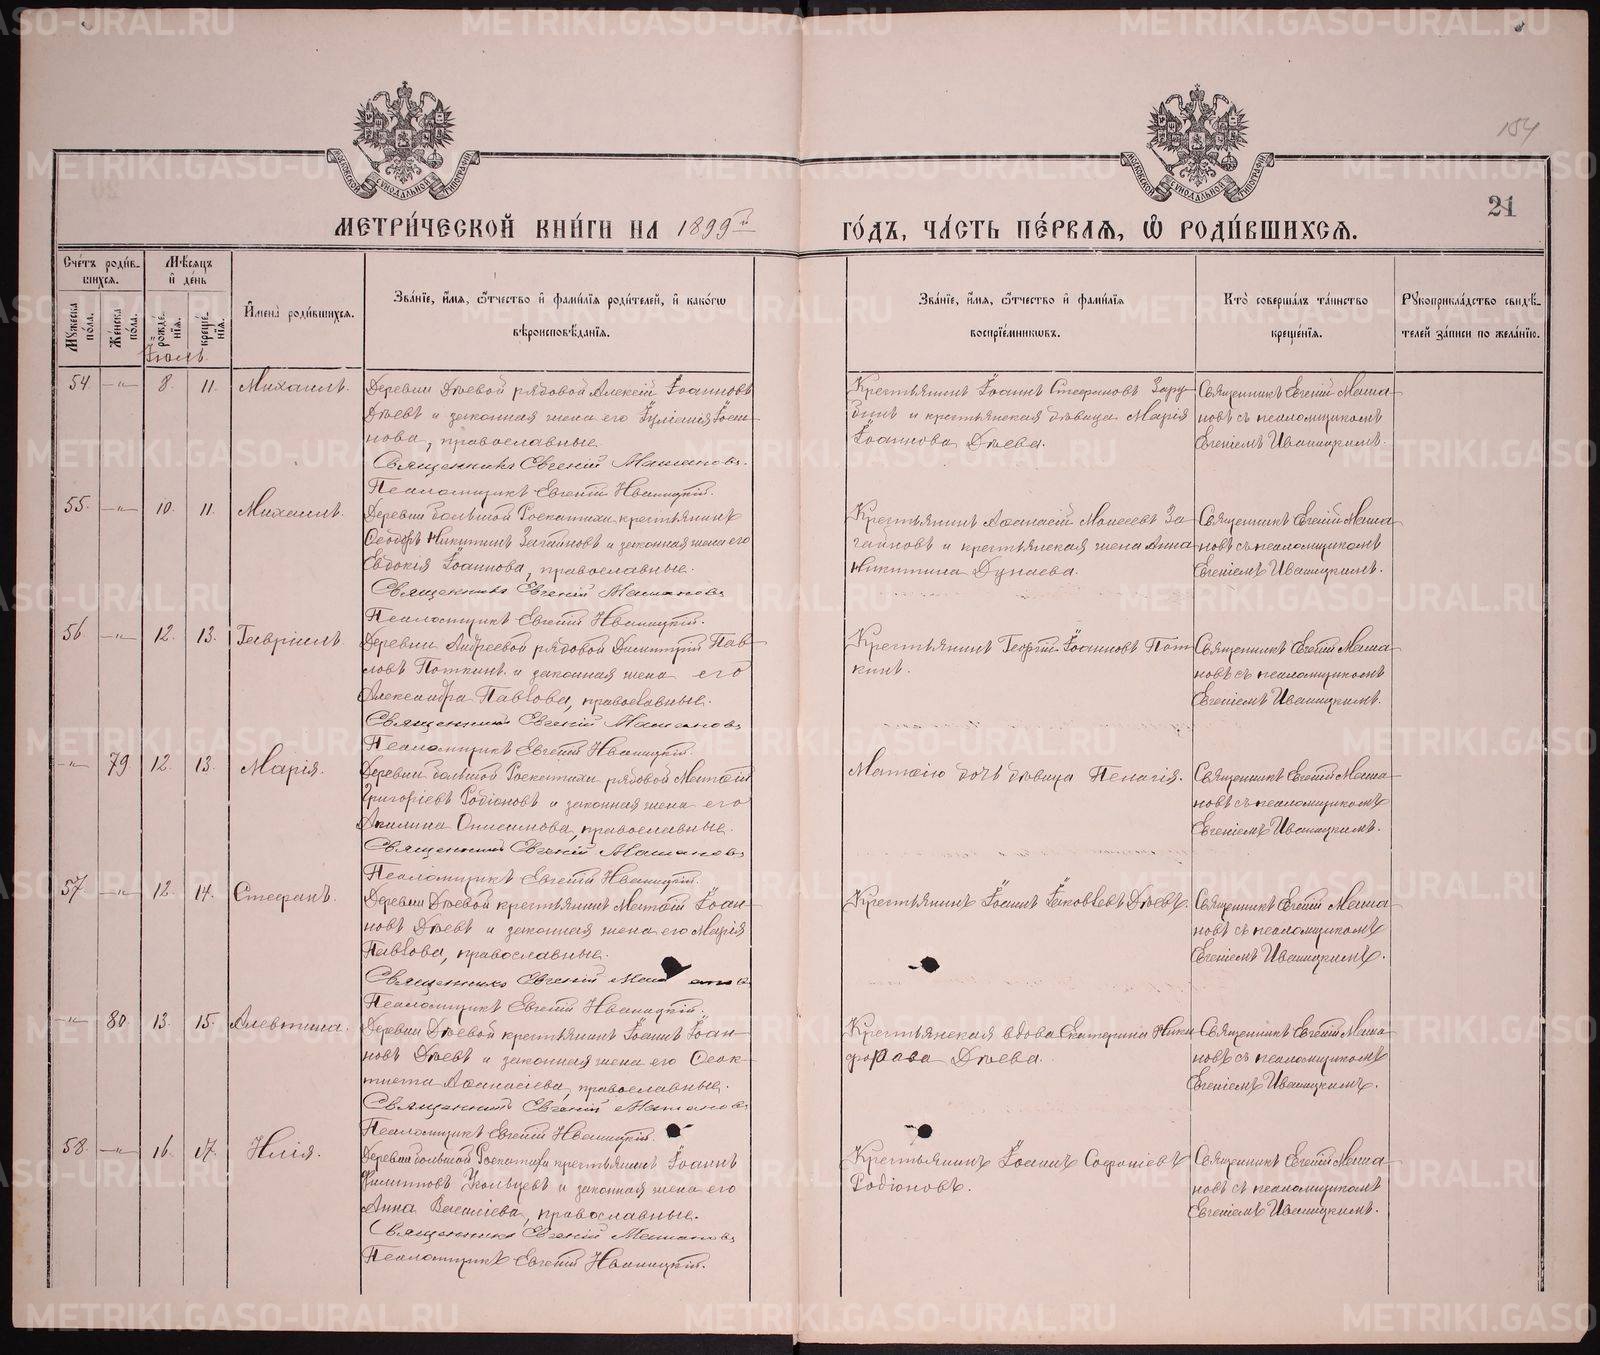 154
21
МЕТРИ́ЧЕСКОЙ КНИ́ГИ НА 1899й ГО́ДЪ, ЧА́СТЬ ПЕ́РВАЯ, Ѽ РОДИ́ВШИХСЯ.
Сче́тъ роди́вшихся.
Мꙋ́жеска по́ла.
Же́нска по́ла.
Мѣ́сяцъ и҆ де́нь
рожде́нїя.
креще́нїя.
И҆мена̀ роди́вшихся.
Зва́нїе, и҆́мя, ѻ҆́тчество и҆ фами́лїя роди́телей, и҆ како́гѡ
вѣроисповѣ́данїя.
Зва́нїе, и҆́мя, ѻ҆́тчество и҆ фами́лїя
воспрїе́мниковъ.
Кто̀ соверша́лъ та́инство
креще́нїя.
Рꙋкоприкла́дство свидѣ́-
телей за́писи по жела́нїю.
Іюль.
54 -"- 8. 11. Михаилъ.
Деревни Дѣевой рядовой Алексій Іоанновъ
Дѣевъ и законная жена его Іулянія Іоан-
нова, православные.
Священникъ Евгеній Машановъ.
Псаломщикъ Евгеній Иваницкій.
Крестьянинъ Іоаннъ Стефановъ Зару-
бинъ и крестьянская дѣвица Марія
Іоаннова Дѣева.
Священникъ Евгеній Маша-
новъ съ псаломщикомъ
Евгеніемъ Иваницкимъ.
55. -"- 10. 11. Михаилъ.
Деревни большой Роскатихи крестьянинъ
Ѳеодоръ Никитинъ Загайновъ и законная жена его
Евдокія Іоаннова, православные.
Священникъ Евгеній Машановъ
Псаломщикъ Евгеній Иваницкій.
Крестьянинъ Аѳанасій Моисеевъ За-
гайновъ и крестьянская жена Анна
Никитина Дунаева.
Священникъ Евгеній Маша-
новъ съ псаломщикомъ
Евгеніемъ Иваницкимъ.
56. -"- 12. 13. Гавріилъ.
Деревни Андреевой рядовой Димитрій Пав-
ловъ Поткинъ и законная жена его
Александра Павлова, православные.
Священникъ Евгеній Машановъ
Псаломщикъ Евгеній Иваницкій.
Крестьянинъ Георгій Іоанновъ Пот-
кинъ.
Священникъ Евгеній Маша-
новъ съ псаломщикомъ
Евгеніемъ Иваницкимъ.
-"- 79 12. 13. Марія.
Деревни большой Роскатихи рядовой Матѳій
Григоріевъ Родіоновъ и законная жена его
Акилина Онисимова, православные.
Священникъ Евгеній Машановъ
Псаломщикъ Евгеній Иваницкій.
Матѳію дочь дѣвица Пелагія.
Священникъ Евгеній Маша-
новъ съ псаломщикомъ
Евгеніемъ Иваницкимъ.
57. -"- 12 14. Стефанъ.
Деревни Дѣевой крестьянинъ Матѳій Іоан-
новъ Дѣевъ и законная жена его Марія
Павлова, православные.
Священникъ Евгеній
Псаломщикъ Евгеній Иваницкій.
Крестьянинъ Іоаннъ Іаковлевъ Дѣевъ.
Священникъ Евгеній Маша-
новъ съ псаломщикомъ
Евгеніемъ Иваницкимъ.
-"- 80. 13. 15. Алевтина.
Деревни Дѣевой крестьянинъ Іоаннъ Іоан-
новъ Дѣевъ и законная жена его Ѳеок-
тиста Аѳанасіева, православные.
Священникъ Евгеній Машановъ
Псаломщикъ Евгеній Иваницкій.
Крестьянская вдова Екатерина Ники-
форова Дѣева.
Священникъ Евгеній Маша-
новъ съ псаломщикомъ
Евгеніемъ Иваницкимъ.
58. -"- 16 17. Илія.
Деревни большой Роскатихи крестьянинъ Іоаннъ
Филипповъ Укольцевъ и законная жена его
Анна Василіева, православные.
Священникъ Евгеній Машановъ
Псаломщикъ Евгеній Иваницкій.
Крестьянинъ Іоаннъ Софоніевъ
Родіоновъ.
Священникъ Евгеній Маша-
новъ съ псаломщикомъ
Евгеніемъ Иваницкимъ.
METRIKI.GASO-URAL.RU